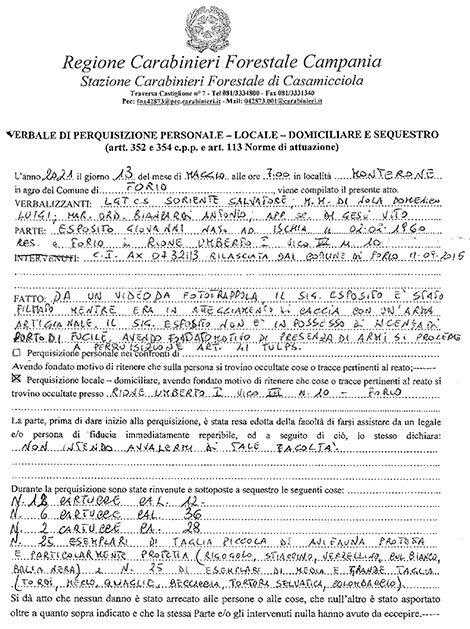 Regione Carabinieri Forestale Campania
Stazione Carabinieri Forestale di Casamicciola
Traversa Castiglione n° 7 - Tel 081/3334800 - Fax 081/3331340
Pec: fna42873@pec.carabinieri.it - Mail: 042873.001@carabinieri.it
VERBALE DI PERQUISIZIONE PERSONALE – LOCALE – DOMICILIARE E SEQUESTRO
(artt. 352 e 354 c.p.p. e art. 113 Norme di attuazione)
L'anno 2021 il giorno 13 del mese di MAGGIO alle ore 7:00 in località MONTERONE
in agro del Comune di FORIO, viene compilato il presente atto.
VERBALIZZANTI: LGT C.S. SORIENTE SALVATORE, M.M. DI NOLA DOMENICO
LUIGI, MAR. ORD. ANTONIO, APP. SC. DI GESÙ VITO
PARTE: ESPOSITO GIOVANNI NATO AD ISCHIA IL 02-02-1960
RES. A FORIO IN RIONE UMBERTO I VICO III N. 10
INTERVENUTI: C.I. AX 0732113 RILASCIATA DAL COMUNE DI FORIO 11-09-2015
FATTO: DA UN VIDEO DA FOTOTRAPPOLA, IL SIG. ESPOSITO E' STATO
FILMATO MENTRE ERA IN ATTEGGIAMENTO DI CACCIA CON UN'ARMA
ARTIGIANALE. IL SIG. ESPOSITO NON E' IN POSSESSO DI LICENZA DI
PORTO DI FUCILE, AVENDO FONDATO MOTIVO DI PRESENZA DI ARMI SI PROCEDE
A PERQUISIZIONE ART. 41 TULPS.
□ Perquisizione personale nei confronti di
Avendo fondato motivo di ritenere che sulla persona si trovino occultate cose o tracce pertinenti al reato;
☒ Perquisizione locale – domiciliare, avendo fondato motivo di ritenere che cose o tracce pertinenti al reato si
trovino occultate presso RIONE UMBERTO I VICO III N. 10 - FORIO
La parte, prima di dare inizio alla perquisizione, è stata resa edotta della facoltà di farsi assistere da un legale
e/o persona di fiducia immediatamente reperibile, ed a seguito di ciò, lo stesso dichiara:
NON INTENDO AVVALERMI DI TALE FACOLTÀ.
Durante la perquisizione sono state rinvenute e sottoposte a sequestro le seguenti cose:
N. 12 CARTUCCE CAL. 12
N. 6 CARTUCCE CAL. 36
N. 2 CARTUCCE CA. 28
N. 25 ESEMPLARI DI TAGLIA PICCOLA DI AVIFAUNA PROTETTA
E PARTICOLARMENTE PROTETTA (RIGOGOLO, STIACCINO, VERZELLINO, CUL BIANCO,
BALIA NERA) E N. 25 DI ESEMPLARI DI MEDIA E GRANDE TAGLIA
(TORDI, MERLO, QUAGLIE, BECCACCIA, TORTORA SELVATICA, COLOMBACCIO)
Si dà atto che nessun danno è stato arrecato alle persone o alle cose, che null'altro è stato asportato
oltre a quanto sopra indicato e che la stessa Parte e/o gli intervenuti nulla hanno avuto da eccepire.